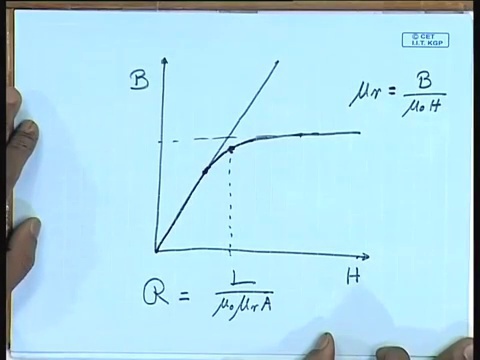 © CET
I.I.T. KGP
B
μr = B / μ₀H
H
R = L / μ₀μrA